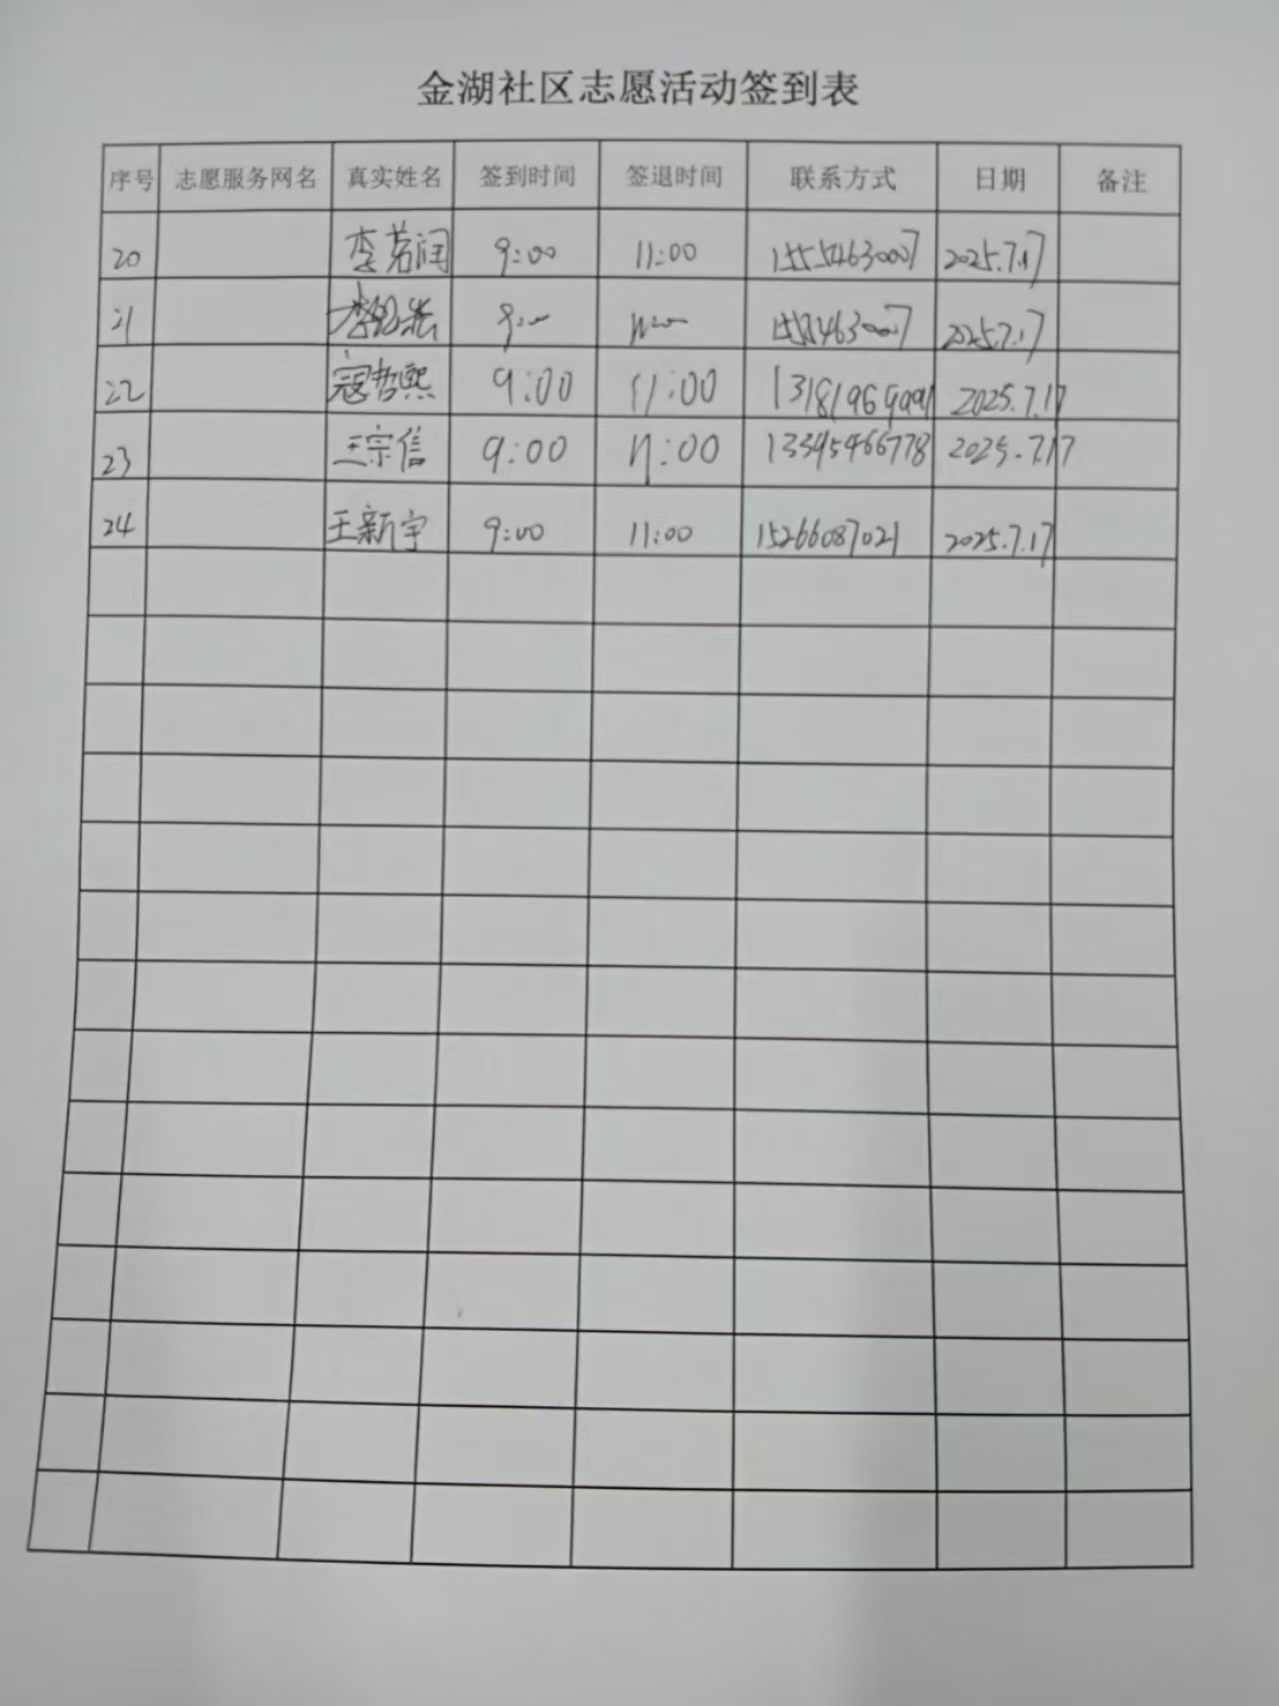 金湖社区志愿活动签到表
序号 志愿服务网名 真实姓名 签到时间 签退时间 联系方式 日期 备注
20 李若润 9:00 11:00 15554630007 2025.7.17
21 9:00 11:00 2025.7.17
22 寇哲熙 9:00 11:00 2025.7.17
23 王宗信 9:00 11:00 13395466778 2025.7.17
24 王新宇 9:00 11:00 15266087021 2025.7.17